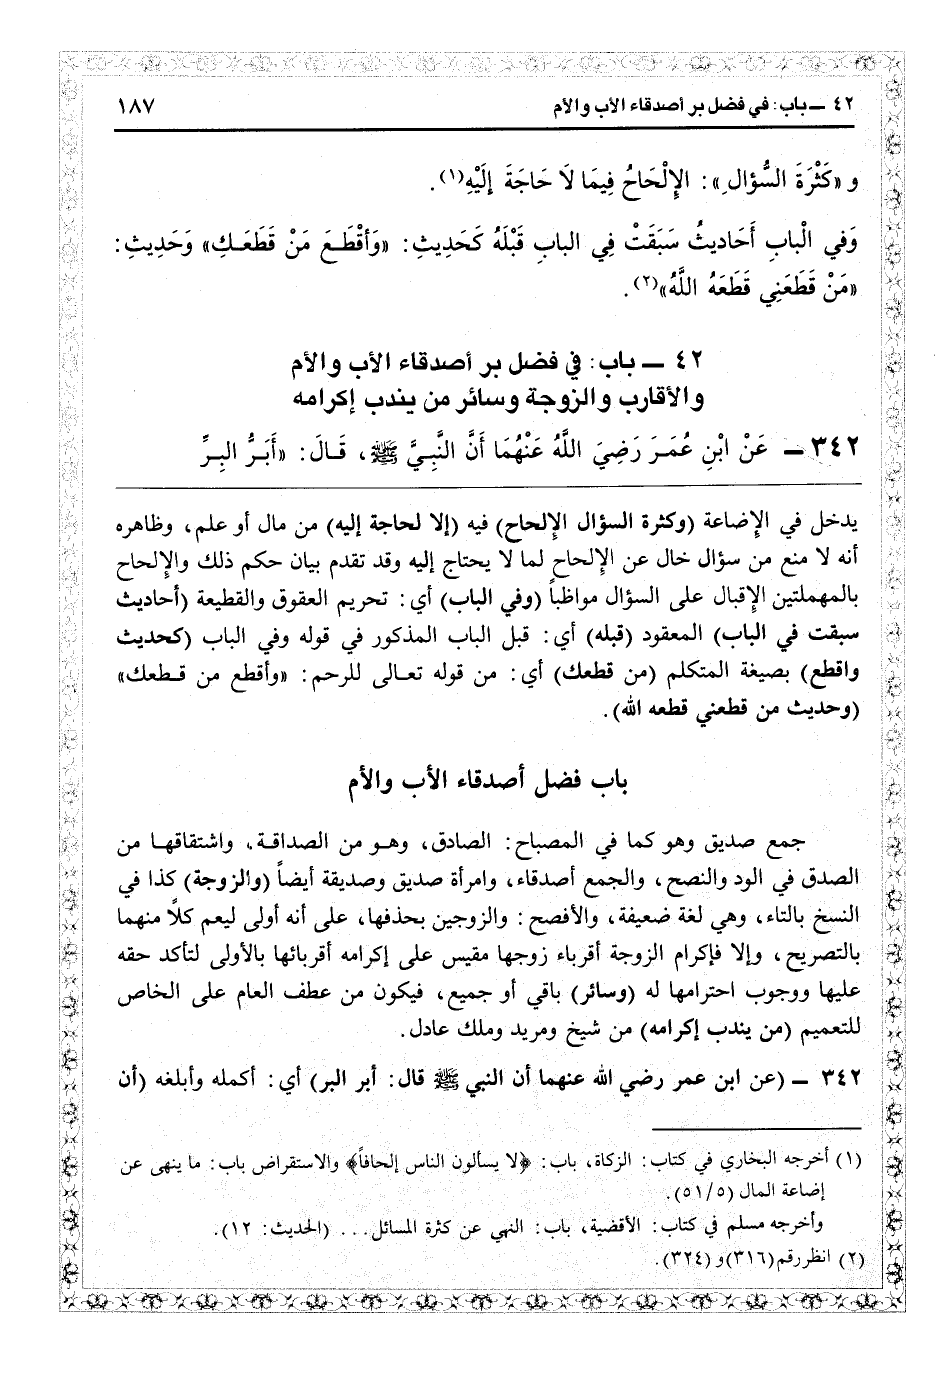 ٤٢ ــ باب: في فضل بر أصدقاء الأب والأم ١٨٧
و «كَثْرَةَ السُّؤالِ»: الإِلْحَاحُ فِيمَا لَا حَاجَةَ إِلَيْهِ(١).
وَفي الْبابِ أَحَاديثُ سَبَقَتْ فِي البابِ قَبْلَهُ كَحَدِيثِ: «وَأقْطَعَ مَنْ قَطَعَكِ» وَحَدِيثِ:
«مَنْ قَطَعَنِي قَطَعَهُ اللَّهُ»(٢).
٤٢ ــ باب: في فضل بر أصدقاء الأب والأم
والأقارب والزوجة وسائر من يندب إكرامه
٣٤٢ ــ عَنْ ابْنِ عُمَرَ رَضِيَ اللَّهُ عَنْهُمَا أَنَّ النَّبِيَّ ﷺ، قَالَ: «أَبَرُّ البِرِّ
يدخل في الإِضاعة (وكثرة السؤال الإِلحاح) فيه (إلا لحاجة إليه) من مال أو علم، وظاهره
أنه لا منع من سؤال خال عن الإِلحاح لما لا يحتاج إليه وقد تقدم بيان حكم ذلك والإِلحاح
بالمهملتين الإِقبال على السؤال مواظباً (وفي الباب) أي: تحريم العقوق والقطيعة (أحاديث
سبقت في الباب) المعقود (قبله) أي: قبل الباب المذكور في قوله وفي الباب (كحديث
واقطع) بصيغة المتكلم (من قطعك) أي: من قوله تعالى للرحم: «وأقطع من قطعك»
(وحديث من قطعني قطعه الله).
باب فضل أصدقاء الأب والأم
جمع صديق وهو كما في المصباح: الصادق، وهو من الصداقة، واشتقاقها من
الصدق في الود والنصح، والجمع أصدقاء، وامرأة صديق وصديقة أيضاً (والزوجة) كذا في
النسخ بالتاء، وهي لغة ضعيفة، والأفصح: والزوجين بحذفها، على أنه أولى ليعم كلاً منهما
بالتصريح، وإلا فإكرام الزوجة أقرباء زوجها مقيس على إكرامه أقربائها بالأولى لتأكد حقه
عليها ووجوب احترامها له (وسائر) باقي أو جميع، فيكون من عطف العام على الخاص
للتعميم (من يندب إكرامه) من شيخ ومريد وملك عادل.
٣٤٢ ــ (عن ابن عمر رضي الله عنهما أن النبي ﷺ قال: أبر البر) أي: أكمله وأبلغه (أن
(١) أخرجه البخاري في كتاب: الزكاة، باب: ﴿لا يسألون الناس إلحافاً﴾ والاستقراض باب: ما ينهى عن
إضاعة المال (٥١/٥).
وأخرجه مسلم في كتاب: الأقضية، باب: النهي عن كثرة المسائل... (الحديث: ١٢).
(٢) انظر رقم (٣١٦) و (٣٢٤).